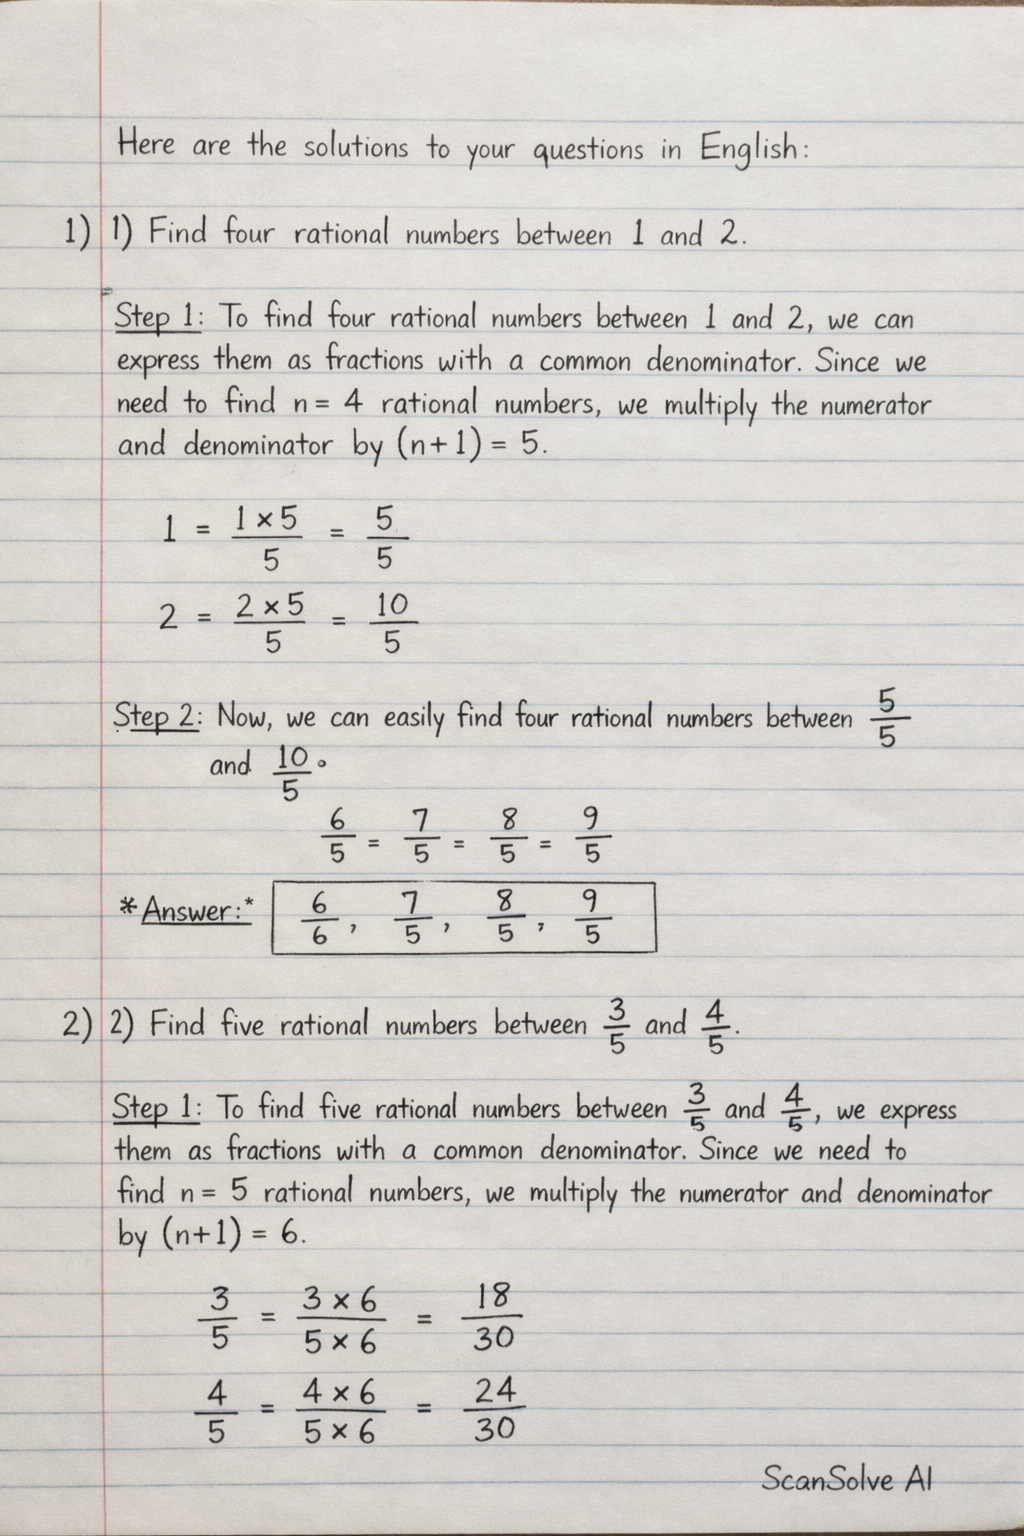 Here are the solutions to your questions in English:
1) 1) Find four rational numbers between 1 and 2.
Step 1: To find four rational numbers between 1 and 2, we can
express them as fractions with a common denominator. Since we
need to find n = 4 rational numbers, we multiply the numerator
and denominator by (n+1) = 5.
1 = (1 × 5)/5 = 5/5
2 = (2 × 5)/5 = 10/5
Step 2: Now, we can easily find four rational numbers between 5/5
and 10/5.
6/5 = 7/5 = 8/5 = 9/5
*Answer:* 6/6, 7/5, 8/5, 9/5
2) 2) Find five rational numbers between 3/5 and 4/5.
Step 1: To find five rational numbers between 3/5 and 4/5, we express
them as fractions with a common denominator. Since we need to
find n = 5 rational numbers, we multiply the numerator and denominator
by (n+1) = 6.
3/5 = (3 × 6)/(5 × 6) = 18/30
4/5 = (4 × 6)/(5 × 6) = 24/30
ScanSolve AI